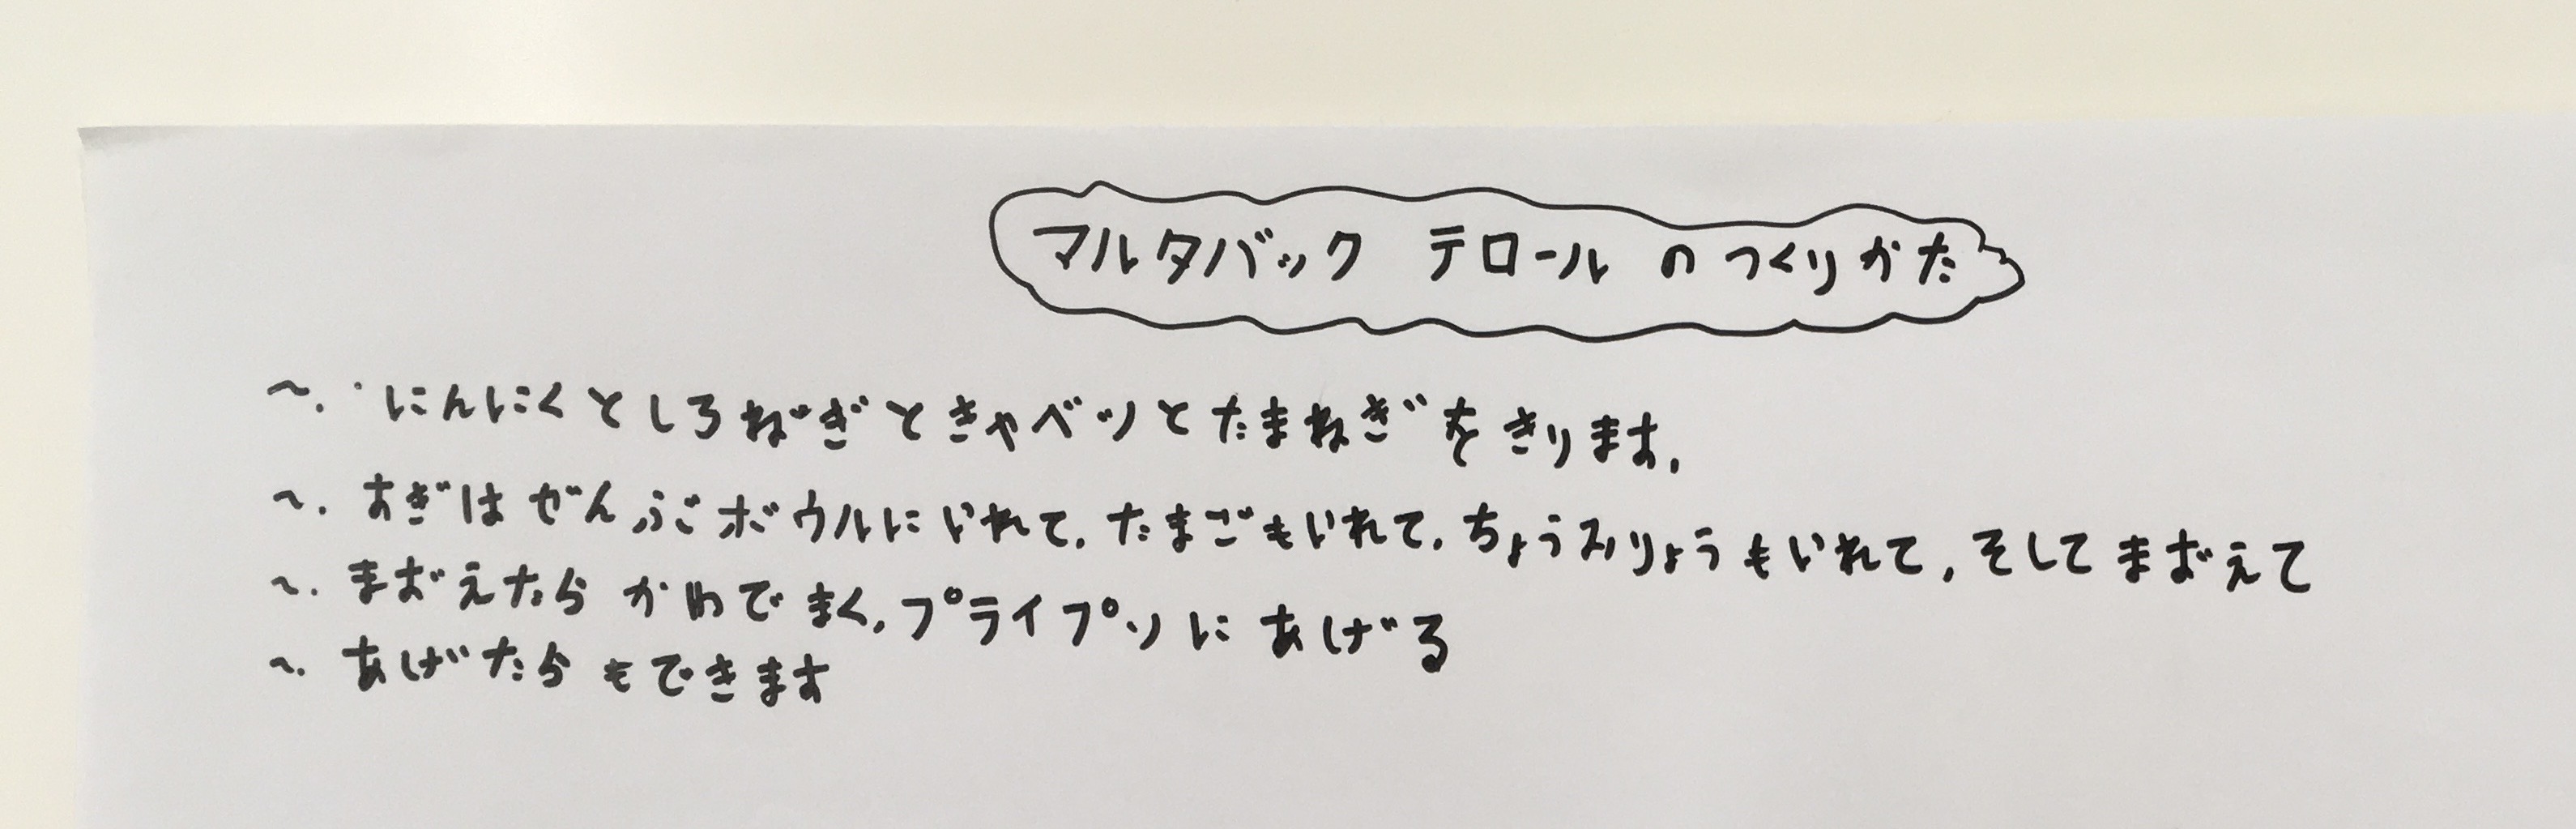 マルタバック テロール のつくりかた
~. にんにくとしろねぎときゃベツとたまねぎをきります.
~. すぎはぜんぶボウルにいれて.たまごもいれて.ちょうみりょうもいれて,そしてまぜえて
~. まぜえたら かわでまく.プライプソにあげる
~. あげたらもできます